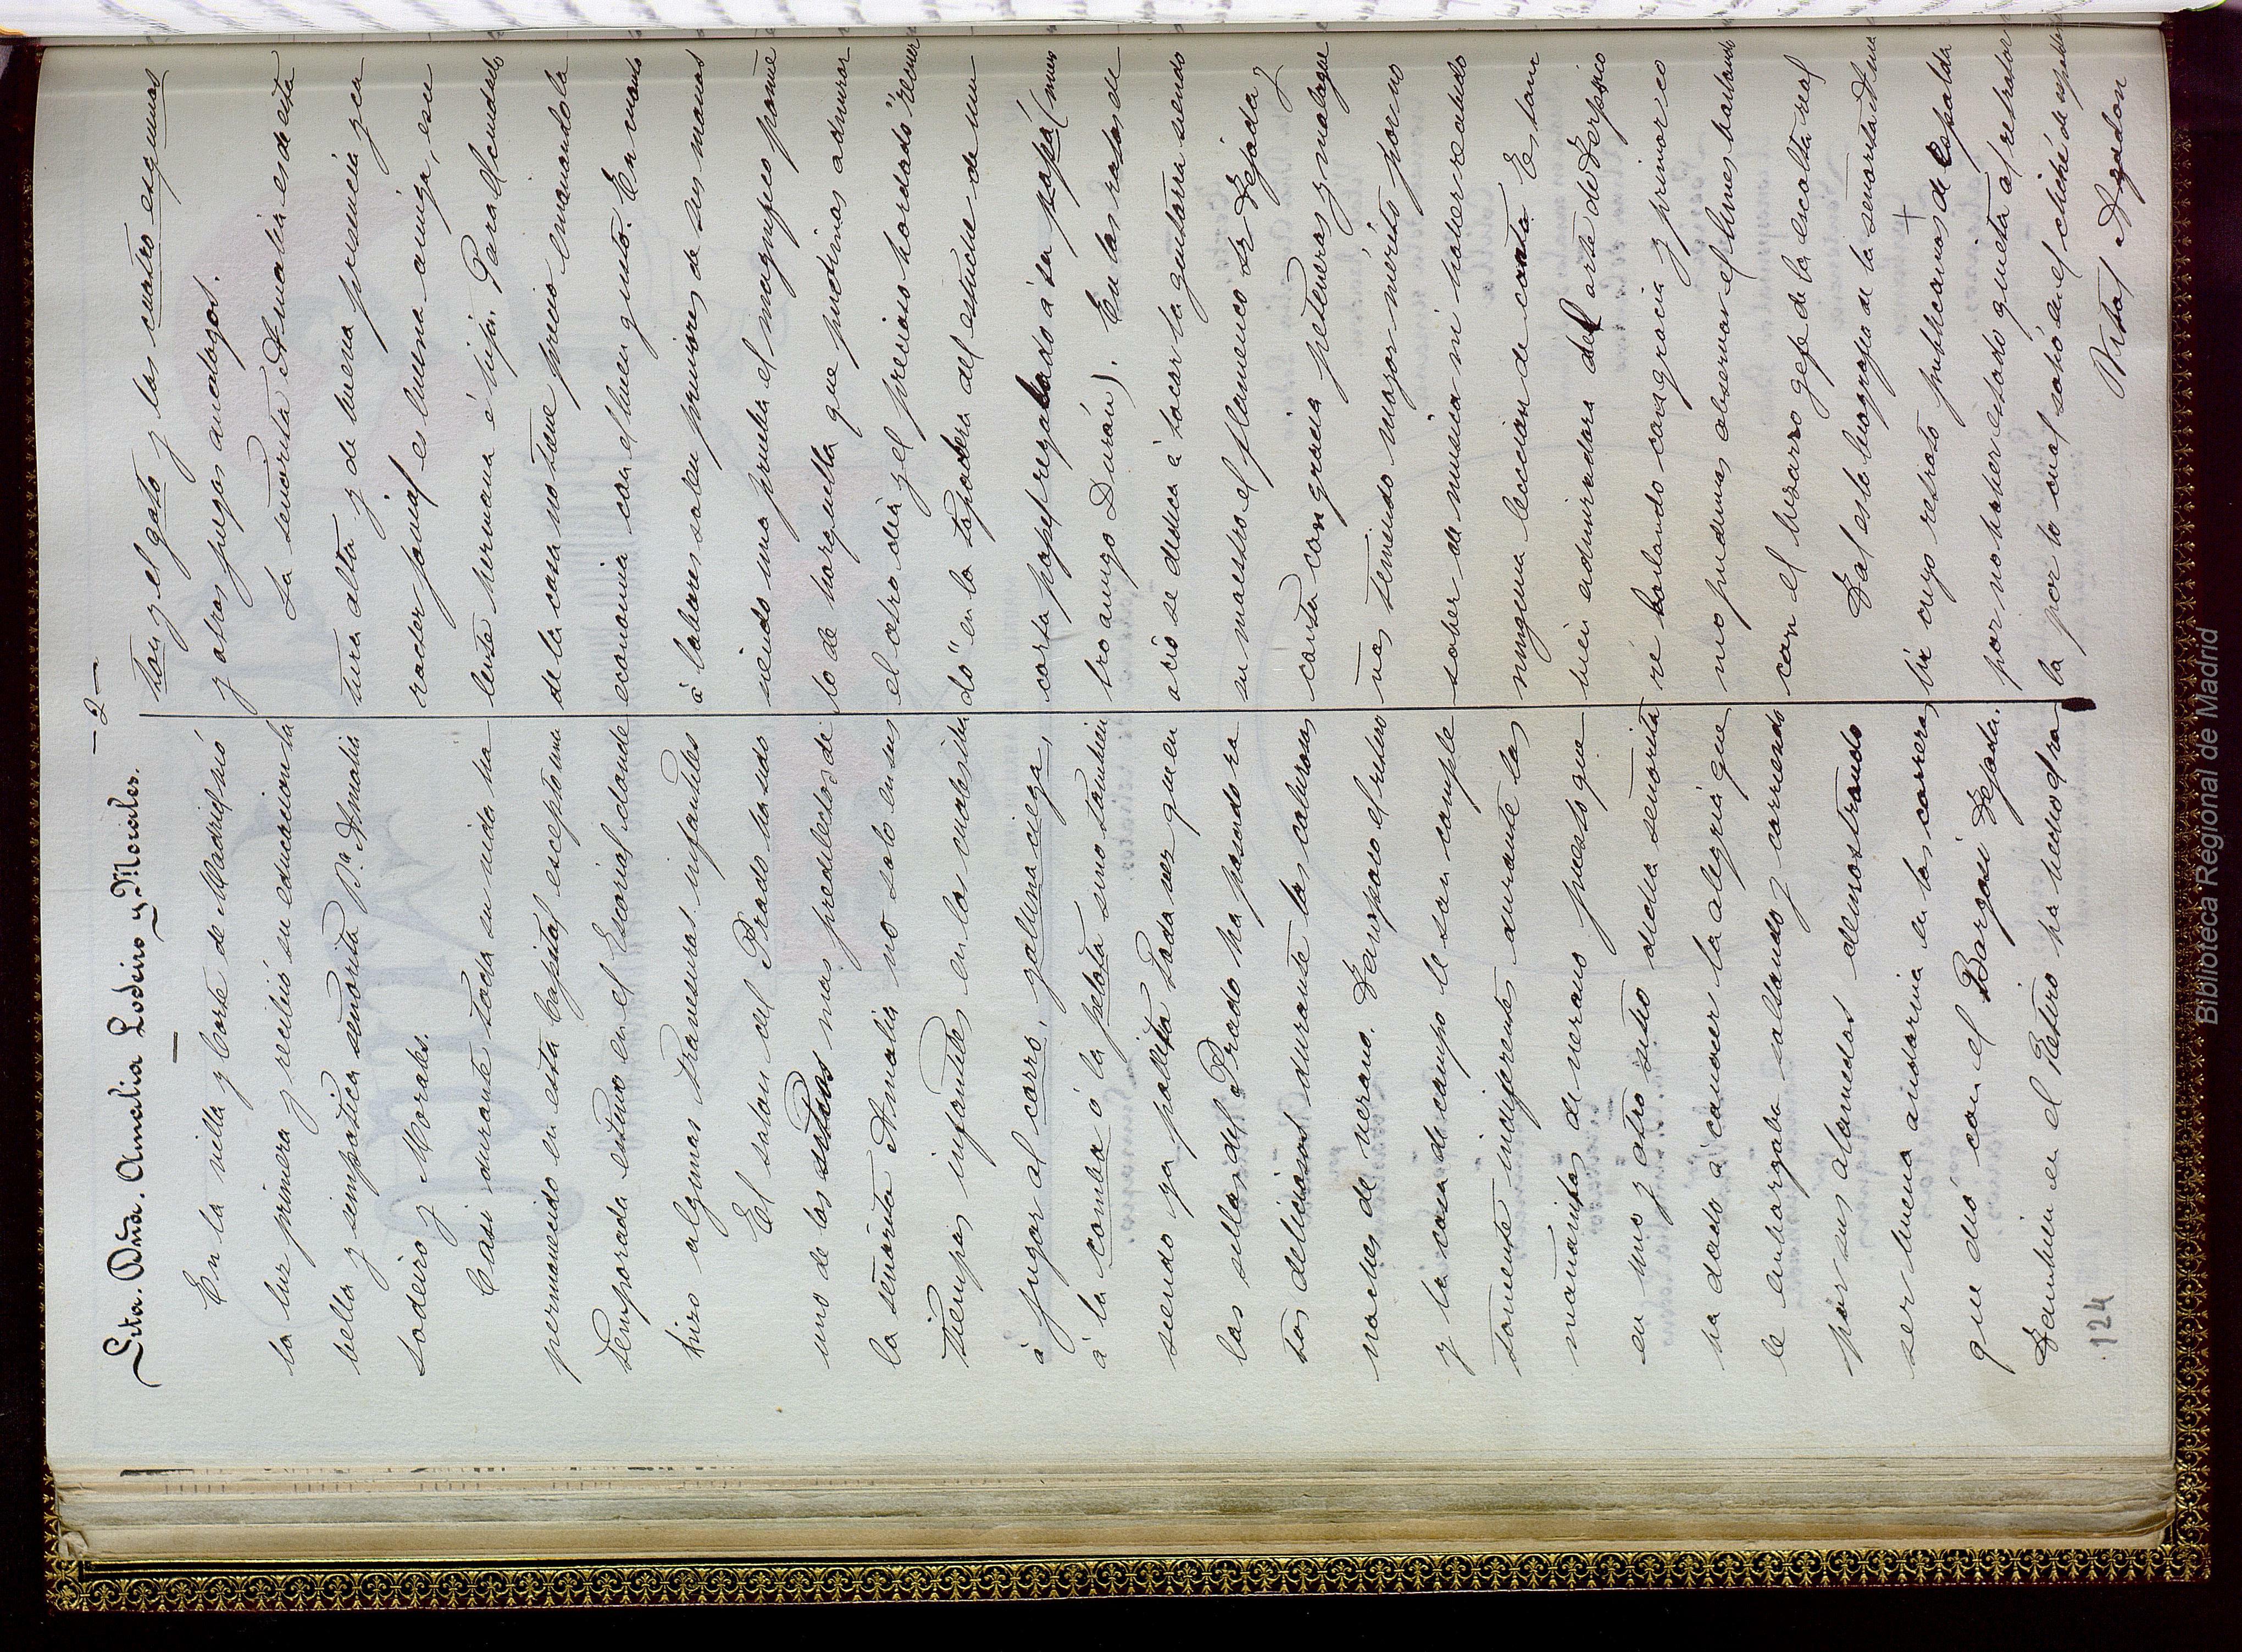 — 2 —
Srta. Dña. Amalia Lodeiro y Morales.
En la villa y Corte de Madrid vió
la luz primera y recibió su educacion la
bella y simpatica señorita Dª Amalia
Lodeiro y Morales.
Casi durante toda su vida ha
permanecido en esta Capital escepto una
temporada estuvo en el Escorial donde
hizo algunas travesuras infantiles
El salon del Prado ha sido
uno de los sitios mas predilectos de
la señorita Amalia no solo en sus
tiempos infantiles en los cuales iba
á jugar al corro, gallina ciega,
á la comba ó la pelota sino tambien
siendo ya pollita toda vez que en
las sillas del Prado ha pasado ra
tos deliciosos durante las calurosas
noches de verano. Tampoco el retiro
y la casa de campo le son comple
tamente indiferentes durante las
mañanitas de verano puesto que
en uno y otro sitio dicha señorita
ha dado á conocer la alegria que
le embargaba saltando y corriendo
por sus alamedas demostrando
ser buena andarina en las carreras
que dió con el Barquí Tejada.
Tambien en el Retiro ha hecho dra
124
ton y el gato y las cuatro esquinas
y otros juegos analogos.
La señorita Amalia es de esta
tura alta y de buena presencia y ca
racter jovial es buena amiga, esce
lente hermana é hija. Para el cuidado
de la casa no tiene precio hermanando la
economia con el buen gusto. En cuanto
á labores salen primores de sus manos
siendo una prueba el magnifico pañue
lo de horquilla que pudimos admirar
el otro dia y el precioso bordado "recuer
do" en la tapadera del estuche de un
corta papel regalado á su papá (nues
tro amigo Durán). En los ratos de
ocio se dedica á tocar la guitarra siendo
su maestro el flamenco Sr Tejada y
canta con gracia peteneras y malague
ñas teniendo mayor mérito por no
saber de musica ni haber recibido
ninguna leccion de canto. Es tam
bien admiradora del arte de Terpsico
re bailando con gracia y primor co
mo pudimos observar el lunes bailando
con el bizarro gefe de la escolta real
Tal es la biografia de la señorita Ama
lia cuyo retrato publicamos de espalda
por no haber estado quieta al retratar
la por lo cual salió en el cliché de espalda
Vital Agdon